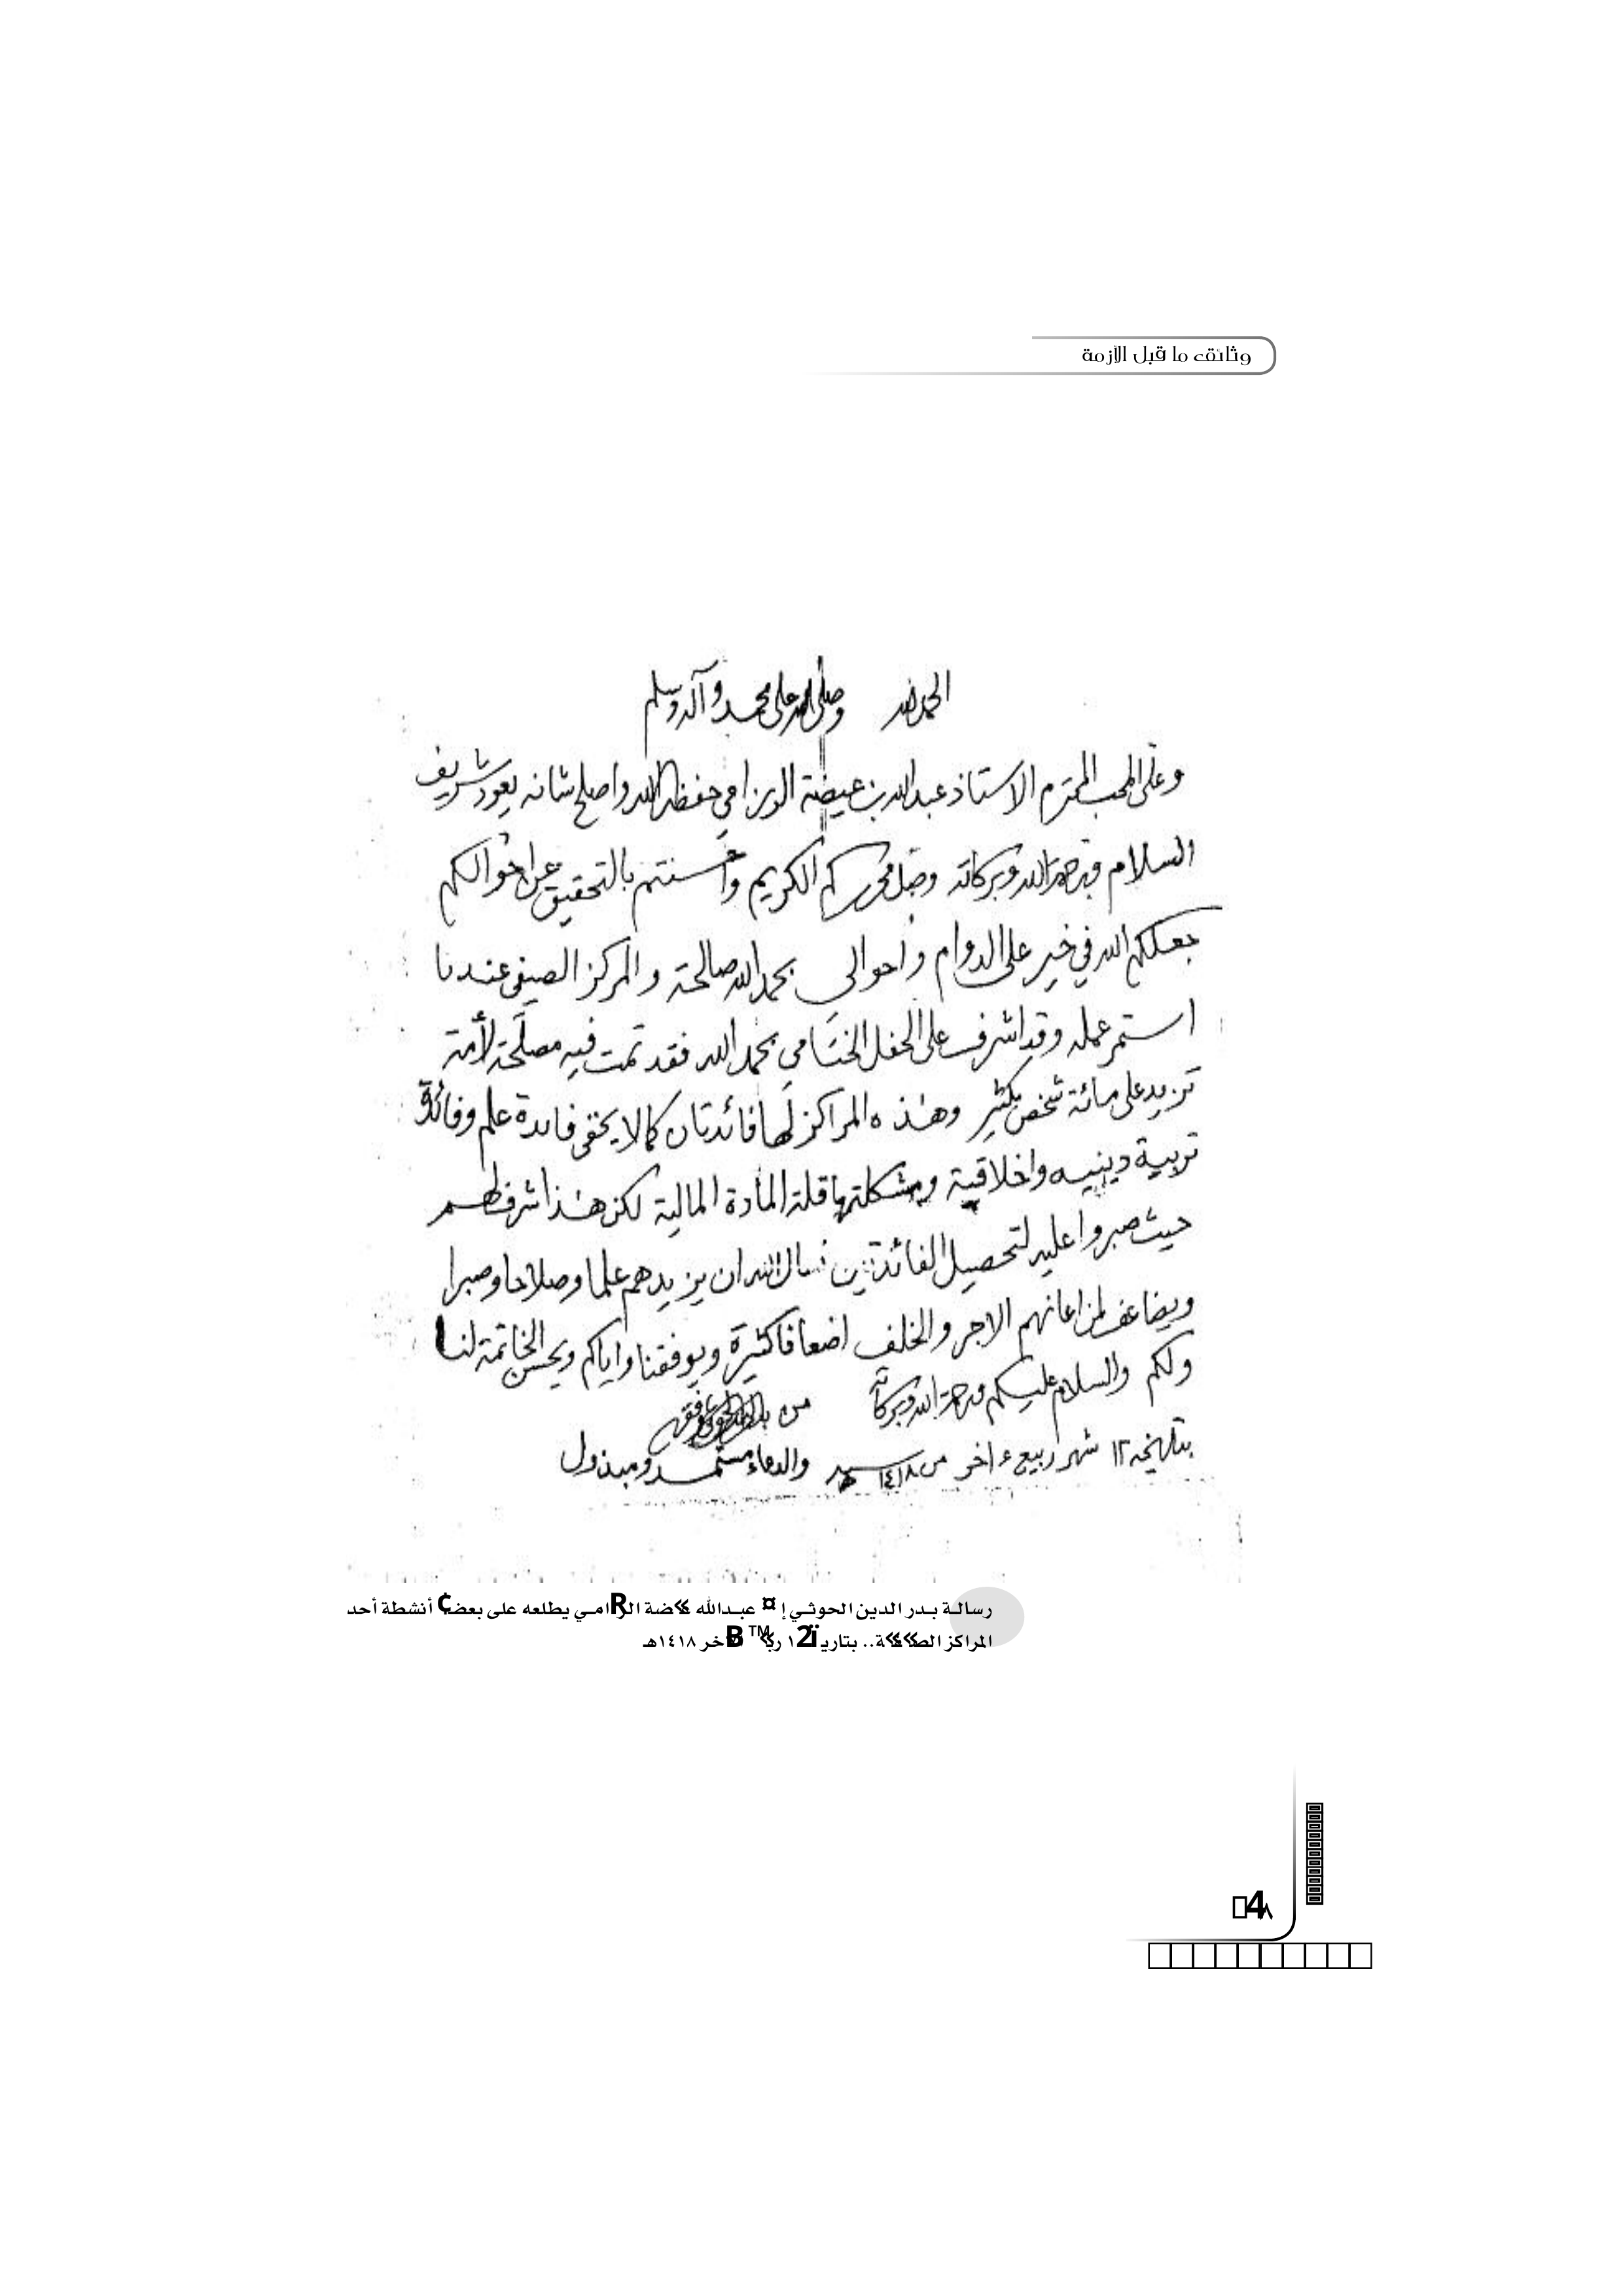 وثائق ما قبل الأزمة
الحمد لله وصلى الله على محمد وآله وسلم
وعلى المحب المحترم الاستاذ عبدالله بن عيضة الرزامي حفظه الله واصلح شانه يعود شريف
السلام ورحمة الله وبركاته وصل محرركم الكريم واحسنتم بالتحقيق عن احوالكم
جعلكم الله في خير على الدوام واحوالي بحمد الله صالحة والمركز الصيفي عندنا
استمر عمله وقد اشرف على الحفل الختامي بحمد الله فقد تمت فيه مصلحة لأمة
تزيد على مائة شخص بكثير وهذه المراكز لها فائدتان كما لا يخفى فائدة علم وفائدة
تربية دينيه واخلاقية ومشكلتها قلة المادة المالية لكن هذا شرف لهم
حيث صبروا عليه لتحصيل الفائدتين نسال الله ان يزيدهم علما وصلاحا وصبرا
ويضاعف لمن اعانهم الاجر والخلف اضعافا كثيرة ويوفقنا واياكم ويحسن الخاتمة لنا
ولكم والسلام عليكم ورحمة الله وبركاته من بدر الدين الحوثي
بتاريخه ١٢ شهر ربيع آخر من ١٤١٨ والدعاء مستمد ومبذول
رسالة بدر الدين الحوثي عبدالله يطلعه على أنشطة أحد
المراكز ١٤١٨هـ